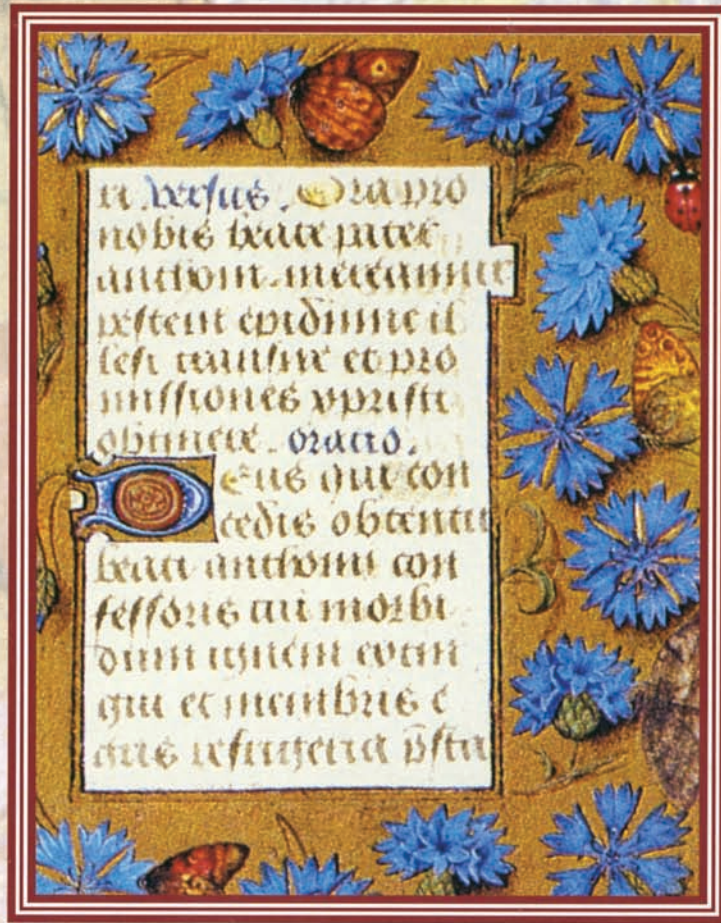 ti. versus. Ora pro
nobis beate pater
anthoni. mereamur
pestem epidimie il
lesi transire et pro
missiones xpristi
obtinere. oracio.
Deus qui con
cedis obtentu
beati anthonii con
fessoris tui morbi
dum ignem extin
gui et membris e
gris refrigeria p̄sta